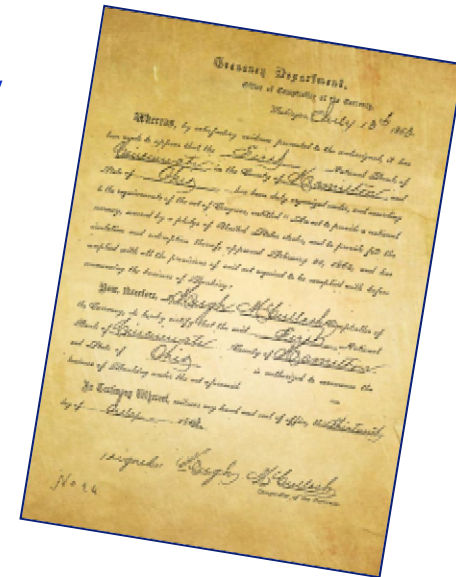 Treasury Department,
Office of Comptroller of the Currency,
Washington, July 13th 1863.
Whereas, by satisfactory evidence presented to the undersigned, it has
been made to appear that the First National Bank of
Cincinnati in the County of Hamilton, and
State of Ohio has been duly organized under, and according
to the requirements of the act of Congress, entitled "An act to provide a national
currency, secured by a pledge of United States stocks, and to provide for the
circulation and redemption thereof, approved February 25, 1863, and has
complied with all the provisions of said act required to be complied with before
commencing the business of Banking;
Now, therefore, I Hugh McCulloch Comptroller of
the Currency, do hereby certify that the said First National
Bank of Cincinnati County of Hamilton
and State of Ohio is authorized to commence the
business of Banking under the act aforesaid
In Testimony Whereof, witness my hand and seal of office, this thirteenth
day of July 1863.
Hugh McCulloch
Comptroller of the Currency.
No 24